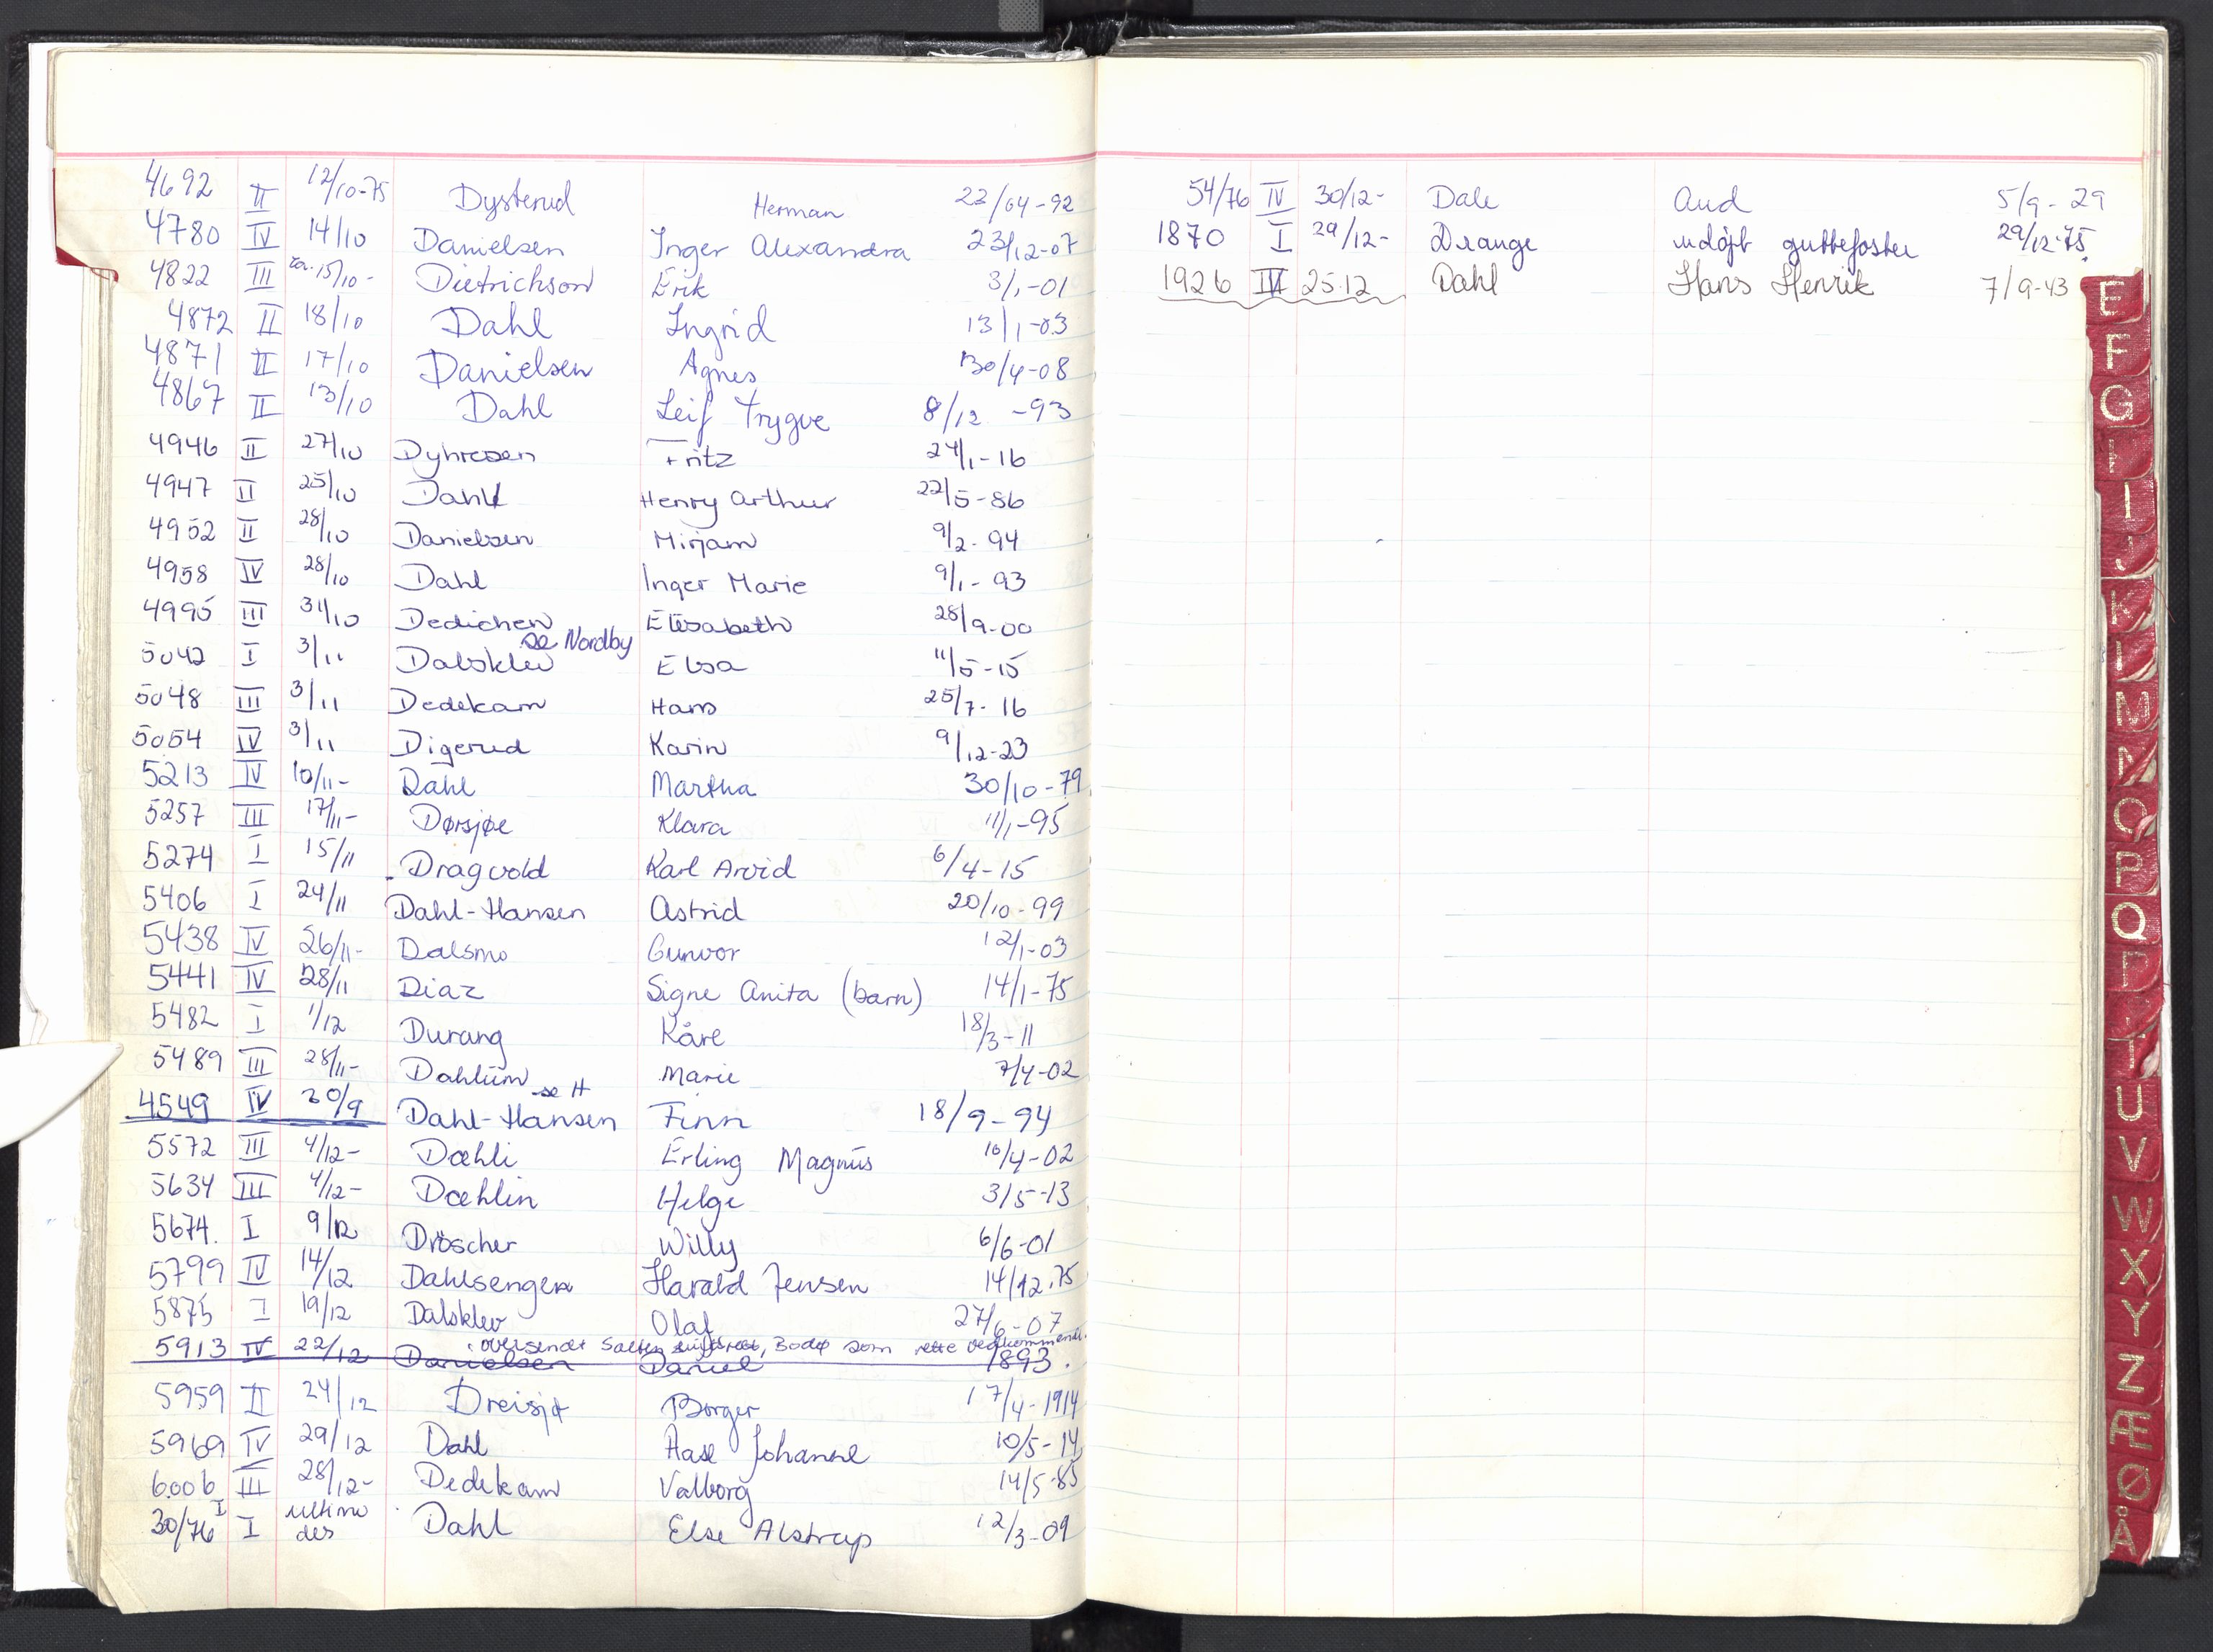 4692 II 12/10-75 Dysterud Herman 22/04-92
4780 IV 14/10 Danielsen Inger Alexandra 23/12-07
4822 III ca. 15/10- Dietrichson Erik 3/1-01
4872 II 18/10 Dahl Ingrid 13/1-03
4871 II 17/10 Danielsen Agnes 30/4-08
4867 II 13/10 Dahl Leif Trygve 8/12 -93
4946 II 27/10 Dyhresen Fritz 24/1-16
4947 II 25/10 Dahl Henry Arthur 22/5-86
4952 II 28/10 Danielsen Mirjam 9/2-94
4958 IV 28/10 Dahl Inger Marie 9/1-93
4995 III 31/10 Dedichen Elisabeth 28/9-00
se Nordby
5042 I 3/11 Dalsklev Elsa 11/5-15
5048 III 3/11 Dedekam Hans 25/7-16
5054 IV 3/11 Digerud Karin 9/12-23
5213 IV 10/11- Dahl Martha 30/10-79
5257 III 17/11- Dørsjøe Klara 11/1-95
5274 I 15/11 Dragvold Karl Arvid 6/4-15
5406 I 24/11 Dahl-Hansen Astrid 20/10-99
5438 IV 26/11- Dalsmo Gunvor 12/1-03
5441 IV 28/11 Diaz Signe Anita (barn) 14/1-75
5482 I 1/12 Durang Kåre 18/3-11
5489 III 28/11- Dahlum Marie 7/4-02
se H
4549 IV 30/9 Dahl-Hansen Finn 18/9-94
5572 III 4/12- Dæhli Erling Magnus 10/4-02
5634 III 4/12- Dæhlin Helge 3/5-13
5674. I 9/12 Dröscher Willy 6/6-01
5799 IV 14/12 Dahlsengen Harald Jensen 14/12.75
5875 I 19/12 Dalsklev Olaf 27/6-07
oversendt Salten skifterett, Bodø som rette vedkommende.
5913 IV 22/12 Danielsen Daniel 1893.
5959 II 24/12 Borger 17/4-1914
5969 IV 29/12 Dahl Aase Johanne 10/5-14
6006 III 28/12- Dedekam Valborg 14/5-85
30/76 I I ultimo des Dahl Else Alstrup 12/3-09
54/76 IV 30/12- Dale Aud 5/9-29
1870 I 29/12- Drange udøpt guttefoster 29/12-75.
1926 IV 25.12 Dahl Hans Henrik 7/9-43
E
F
G
H
I
J
K
L
M
N
O
P
Q
R
T
U
V
W
X
Y
Z
Æ
Ø
Å